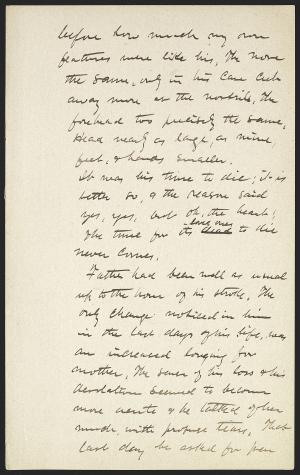 before how much my own
features were like his, The nose
the same, only in his case cut
away more at the nostrils, The
forehead too precisely the same,
Head nearly as large, as mine,
feet, & hands smaller.
It was his time to die; it is
better so, & the reason said
yes, yes, but oh, the heart;
The time for its loved ones dead to die
never comes.
Father had been well as usual
up to the hour of his stroke. The
only change noticed in him
in the last days of his life, was
an increased longing for
mother, The sense of his loss & his
desolation seemed to become
more acute & he talked of her
much with profuse tears, That
last day he asked for pen